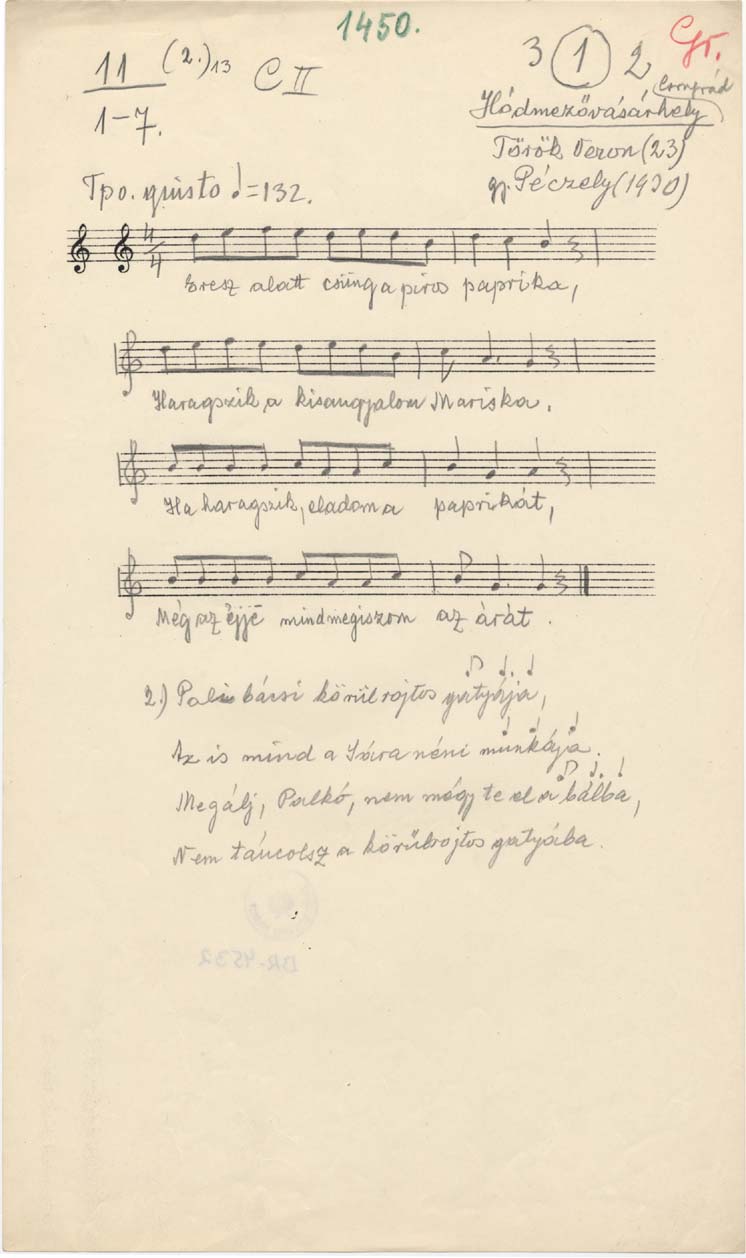 1450.
11 (2.)13 C II
1-7.
3 1 2 Gr.
Csongrád
Hódmezővásárhely
Török Veron (23)
gy. Péczely (1930)
Tpo. giusto =132.
4/4
Eresz alatt csüng a piros paprika,
Haragszik a kisangyalom Mariska.
Ha haragszik, eladom a paprikát,
Még az éjjē mind megiszom az árát.
2.) Pali bácsi körülrojtos gatyája,
Az is mind a Sára néni munkája.
Megálj, Palkó, nem mégy te el a bálba,
Nem táncolsz a körülrojtos gatyába.
BR-4532